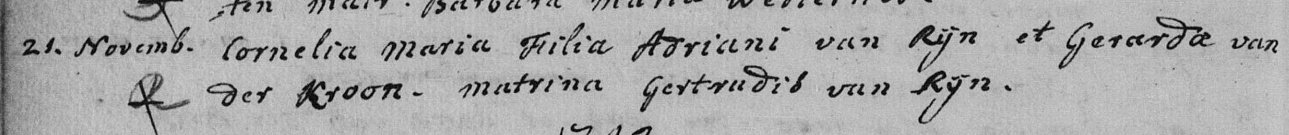 ten matr. Barbara Maria
21. Novemb. Cornelia Maria Filia Adriani van Rÿn et Gerardæ van
der Kroon. matrina Gertrudis van Rÿn.